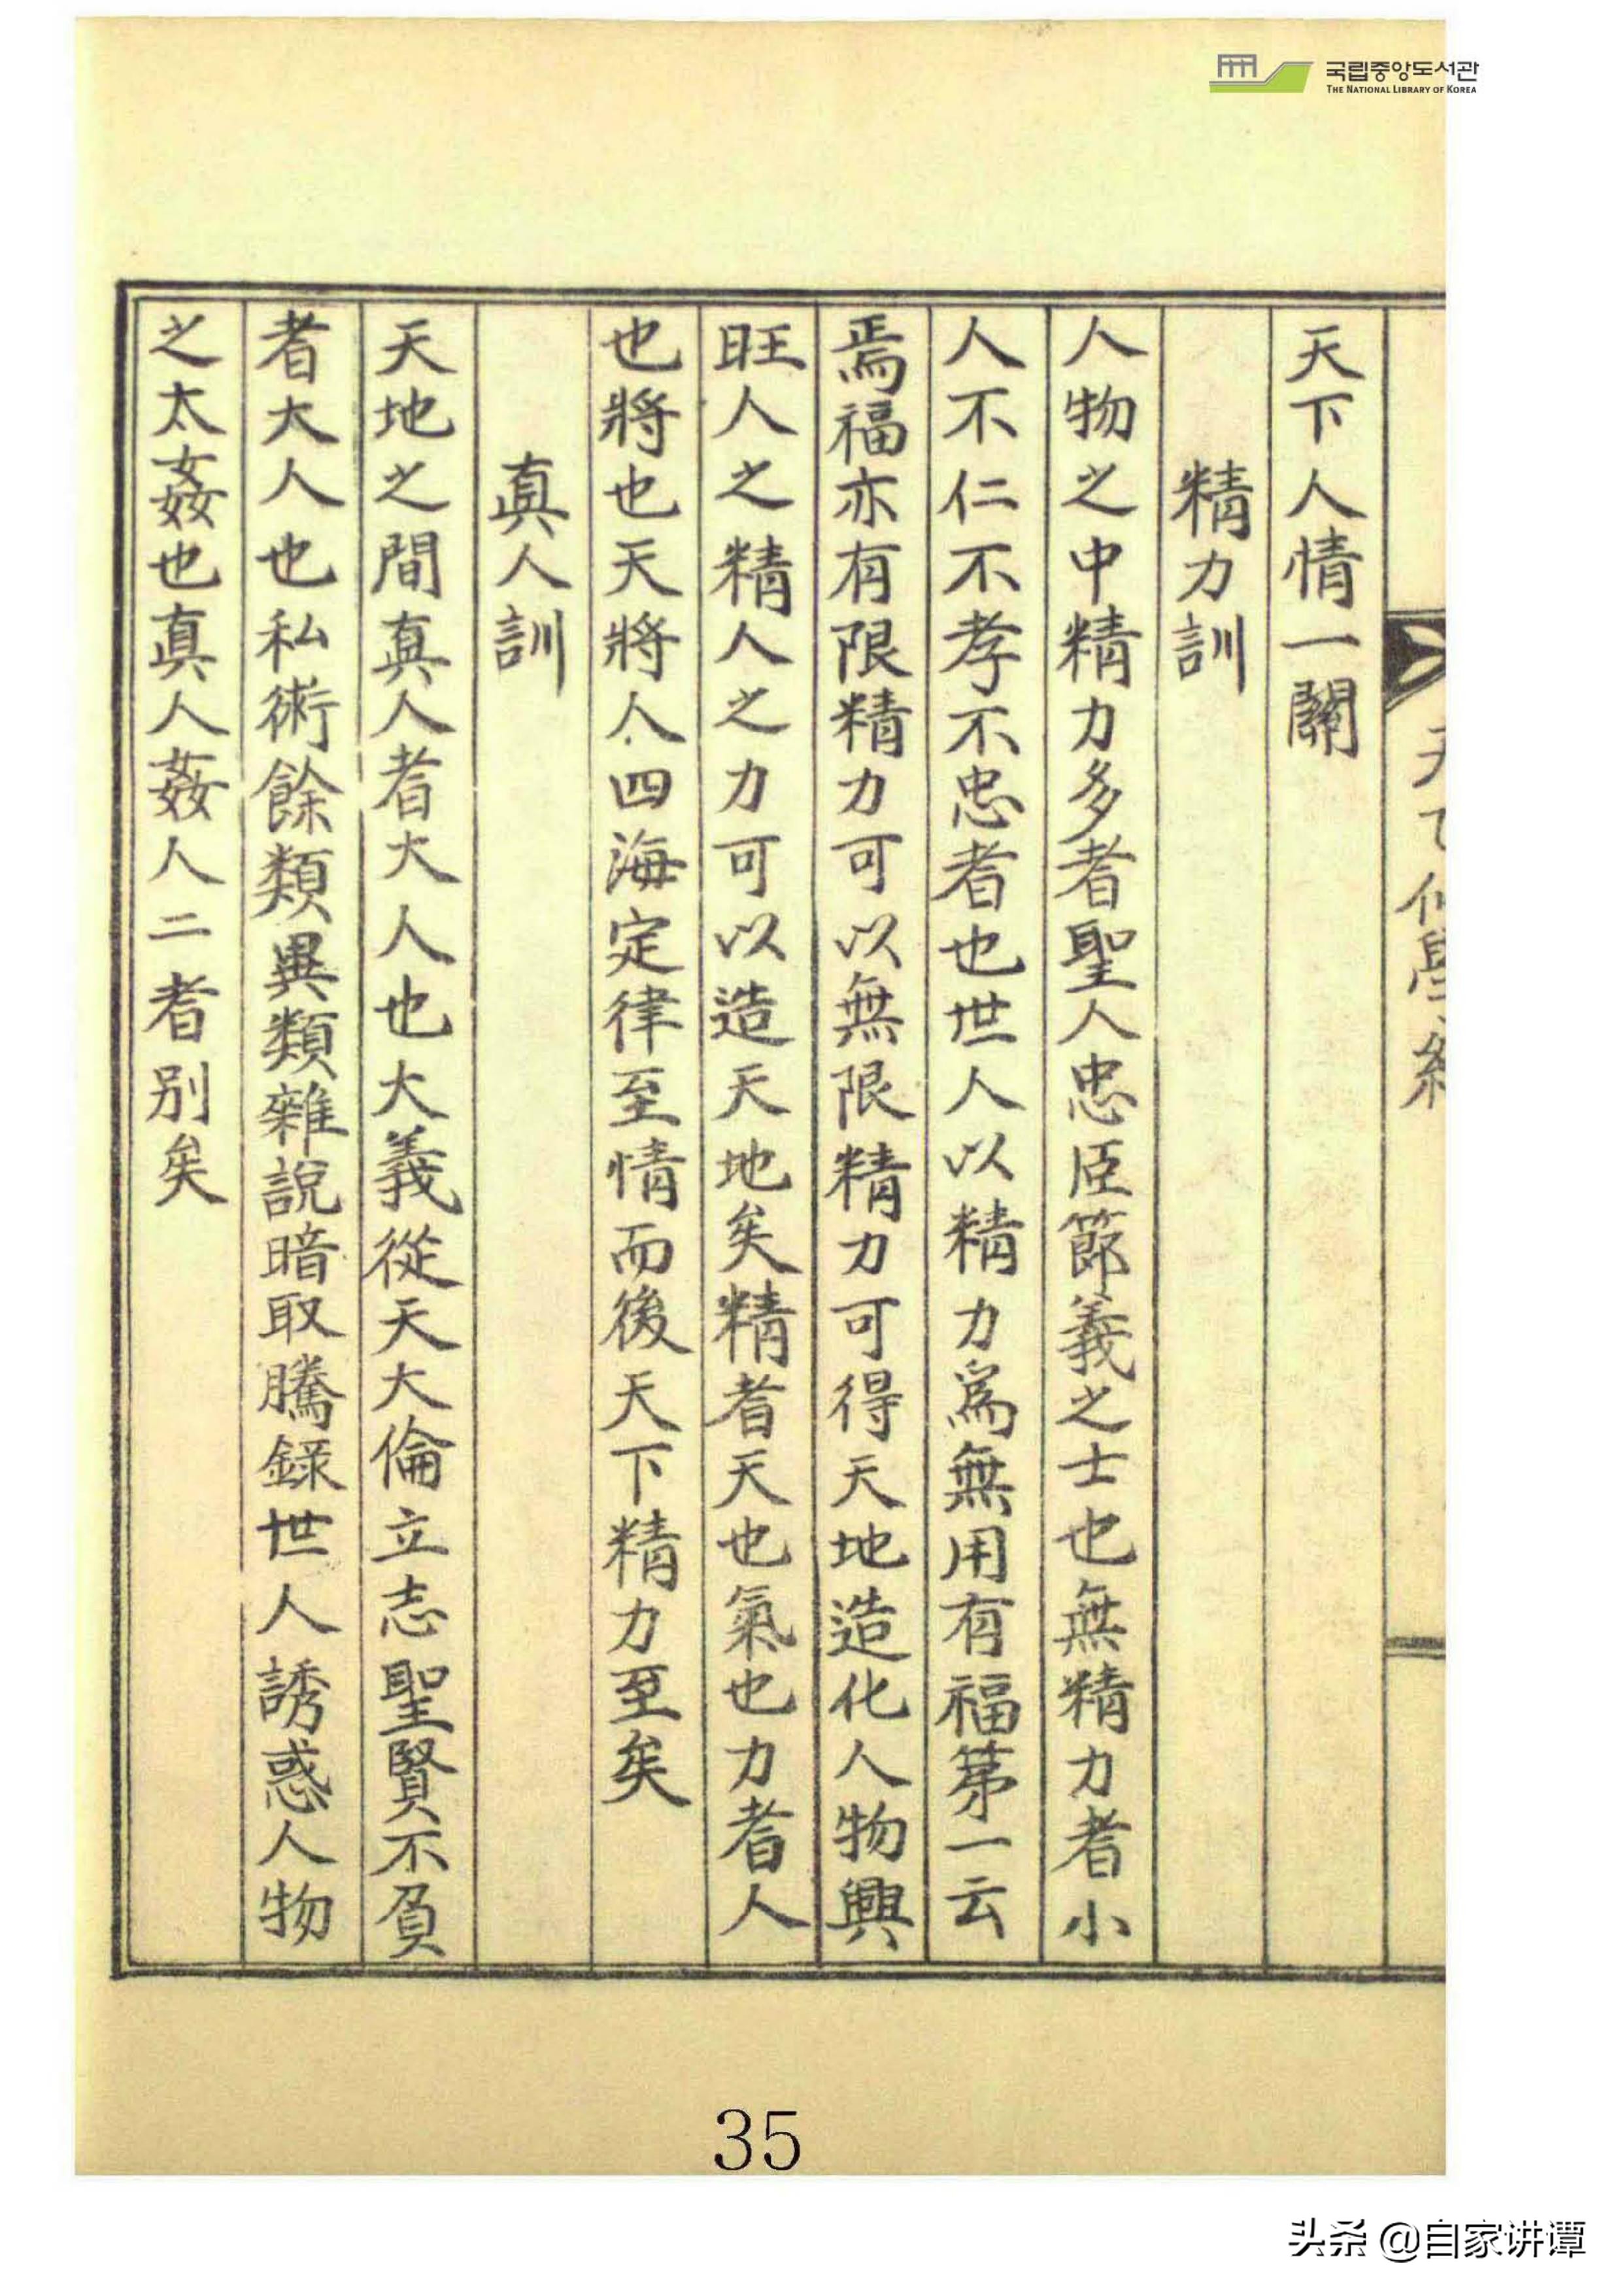 국립중앙도서관
THE NATIONAL LIBRARY OF KOREA
天下人情一關
精力訓
人物之中精力多者聖人忠臣節義之士也無精力者小
人不仁不孝不忠者也世人以精力爲無用有福第一云
焉福亦有限精力可以無限精力可得天地造化人物興
旺人之精人之力可以造天地矣精者天也氣也力者人
也將也天將人四海定律至情而後天下精力至矣
真人訓
天地之間真人者大人也大義從天大倫立志聖賢不負
者大人也私術餘類異類雜說暗取騰錄世人誘惑人物
之太姦也真人姦人二者別矣
35
头条 @自家讲谭